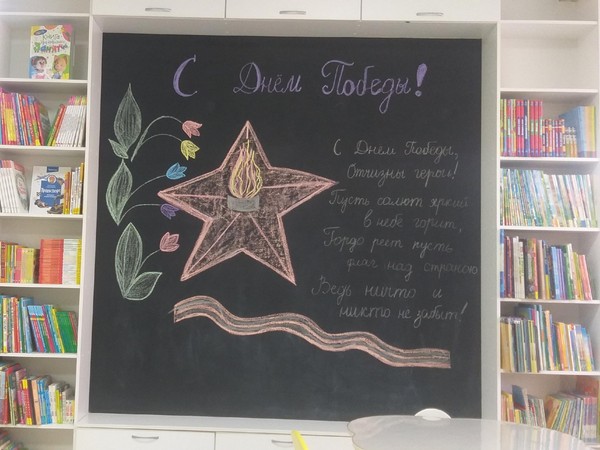 С Днём Победы!
С Днем Победы,
Отчизны герои!
Пусть салют яркий
в небе горит,
Гордо реет пусть
флаг над страною
Ведь ничто и
никто не забыт!